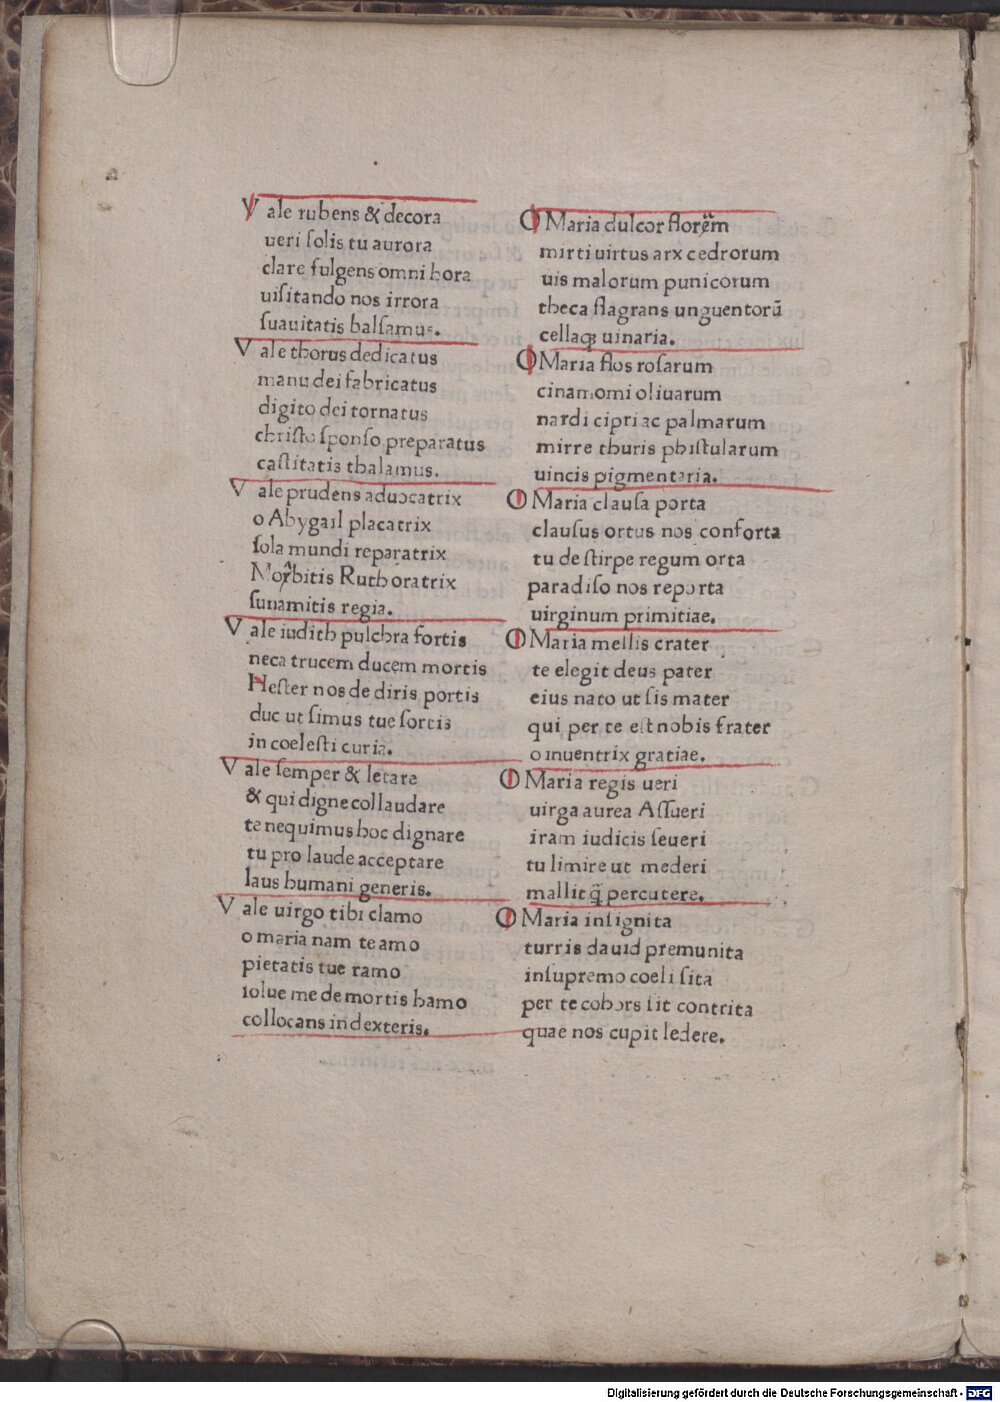 Vale rubens & decora
ueri ſolis tu aurora
clare fulgens omni hora
uiſitando nos irrora
ſuauitatis balſamus.
Vale thorus dedicatus
manu dei fabricatus
digito dei tornatus
chriſto ſponſo preparatus
caſtitatis thalamus.
Vale prudens aduocatrix
o Abygail placatrix
ſola mundi reparatrix
Moabitis Ruth oratrix
ſunamitis regia.
Vale iudith pulchra fortis
neca trucem ducem mortis
Heſter nos de diris portis
duc ut ſimus tue ſortis
in coeleſti curia.
Vale ſemper & letare
& qui digne collaudare
te nequimus hoc dignare
tu pro laude acceptare
laus humani generis.
Vale uirgo tibi clamo
o maria nam te amo
pietatis tue ramo
ſolue me de mortis hamo
collocans in dexteris.
O Maria dulcor florum
mirti uirtus arx cedrorum
uis malorum punicorum
theca flagrans unguentorū
cellaq; uinaria.
O Maria flos roſarum
cinamomi oliuarum
nardi cipri ac palmarum
mirre thuris phiſtularum
uincis pigmentaria.
O Maria clauſa porta
clauſus ortus nos conforta
tu de ſtirpe regum orta
paradiſo nos reporta
uirginum primitiae.
O Maria mellis crater
te elegit deus pater
eius nato ut ſis mater
qui per te eſt nobis frater
o inuentrix gratiae.
O Maria regis ueri
uirga aurea Aſſueri
iram iudicis ſeueri
tu limire ut mederi
mallit q̄ percutere.
O Maria inſignita
turris dauid premunita
inſupremo coeli ſita
per te cohors ſit contrita
quae nos cupit ledere.
Digitalisierung gefördert durch die Deutsche Forschungsgemeinschaft - DFG